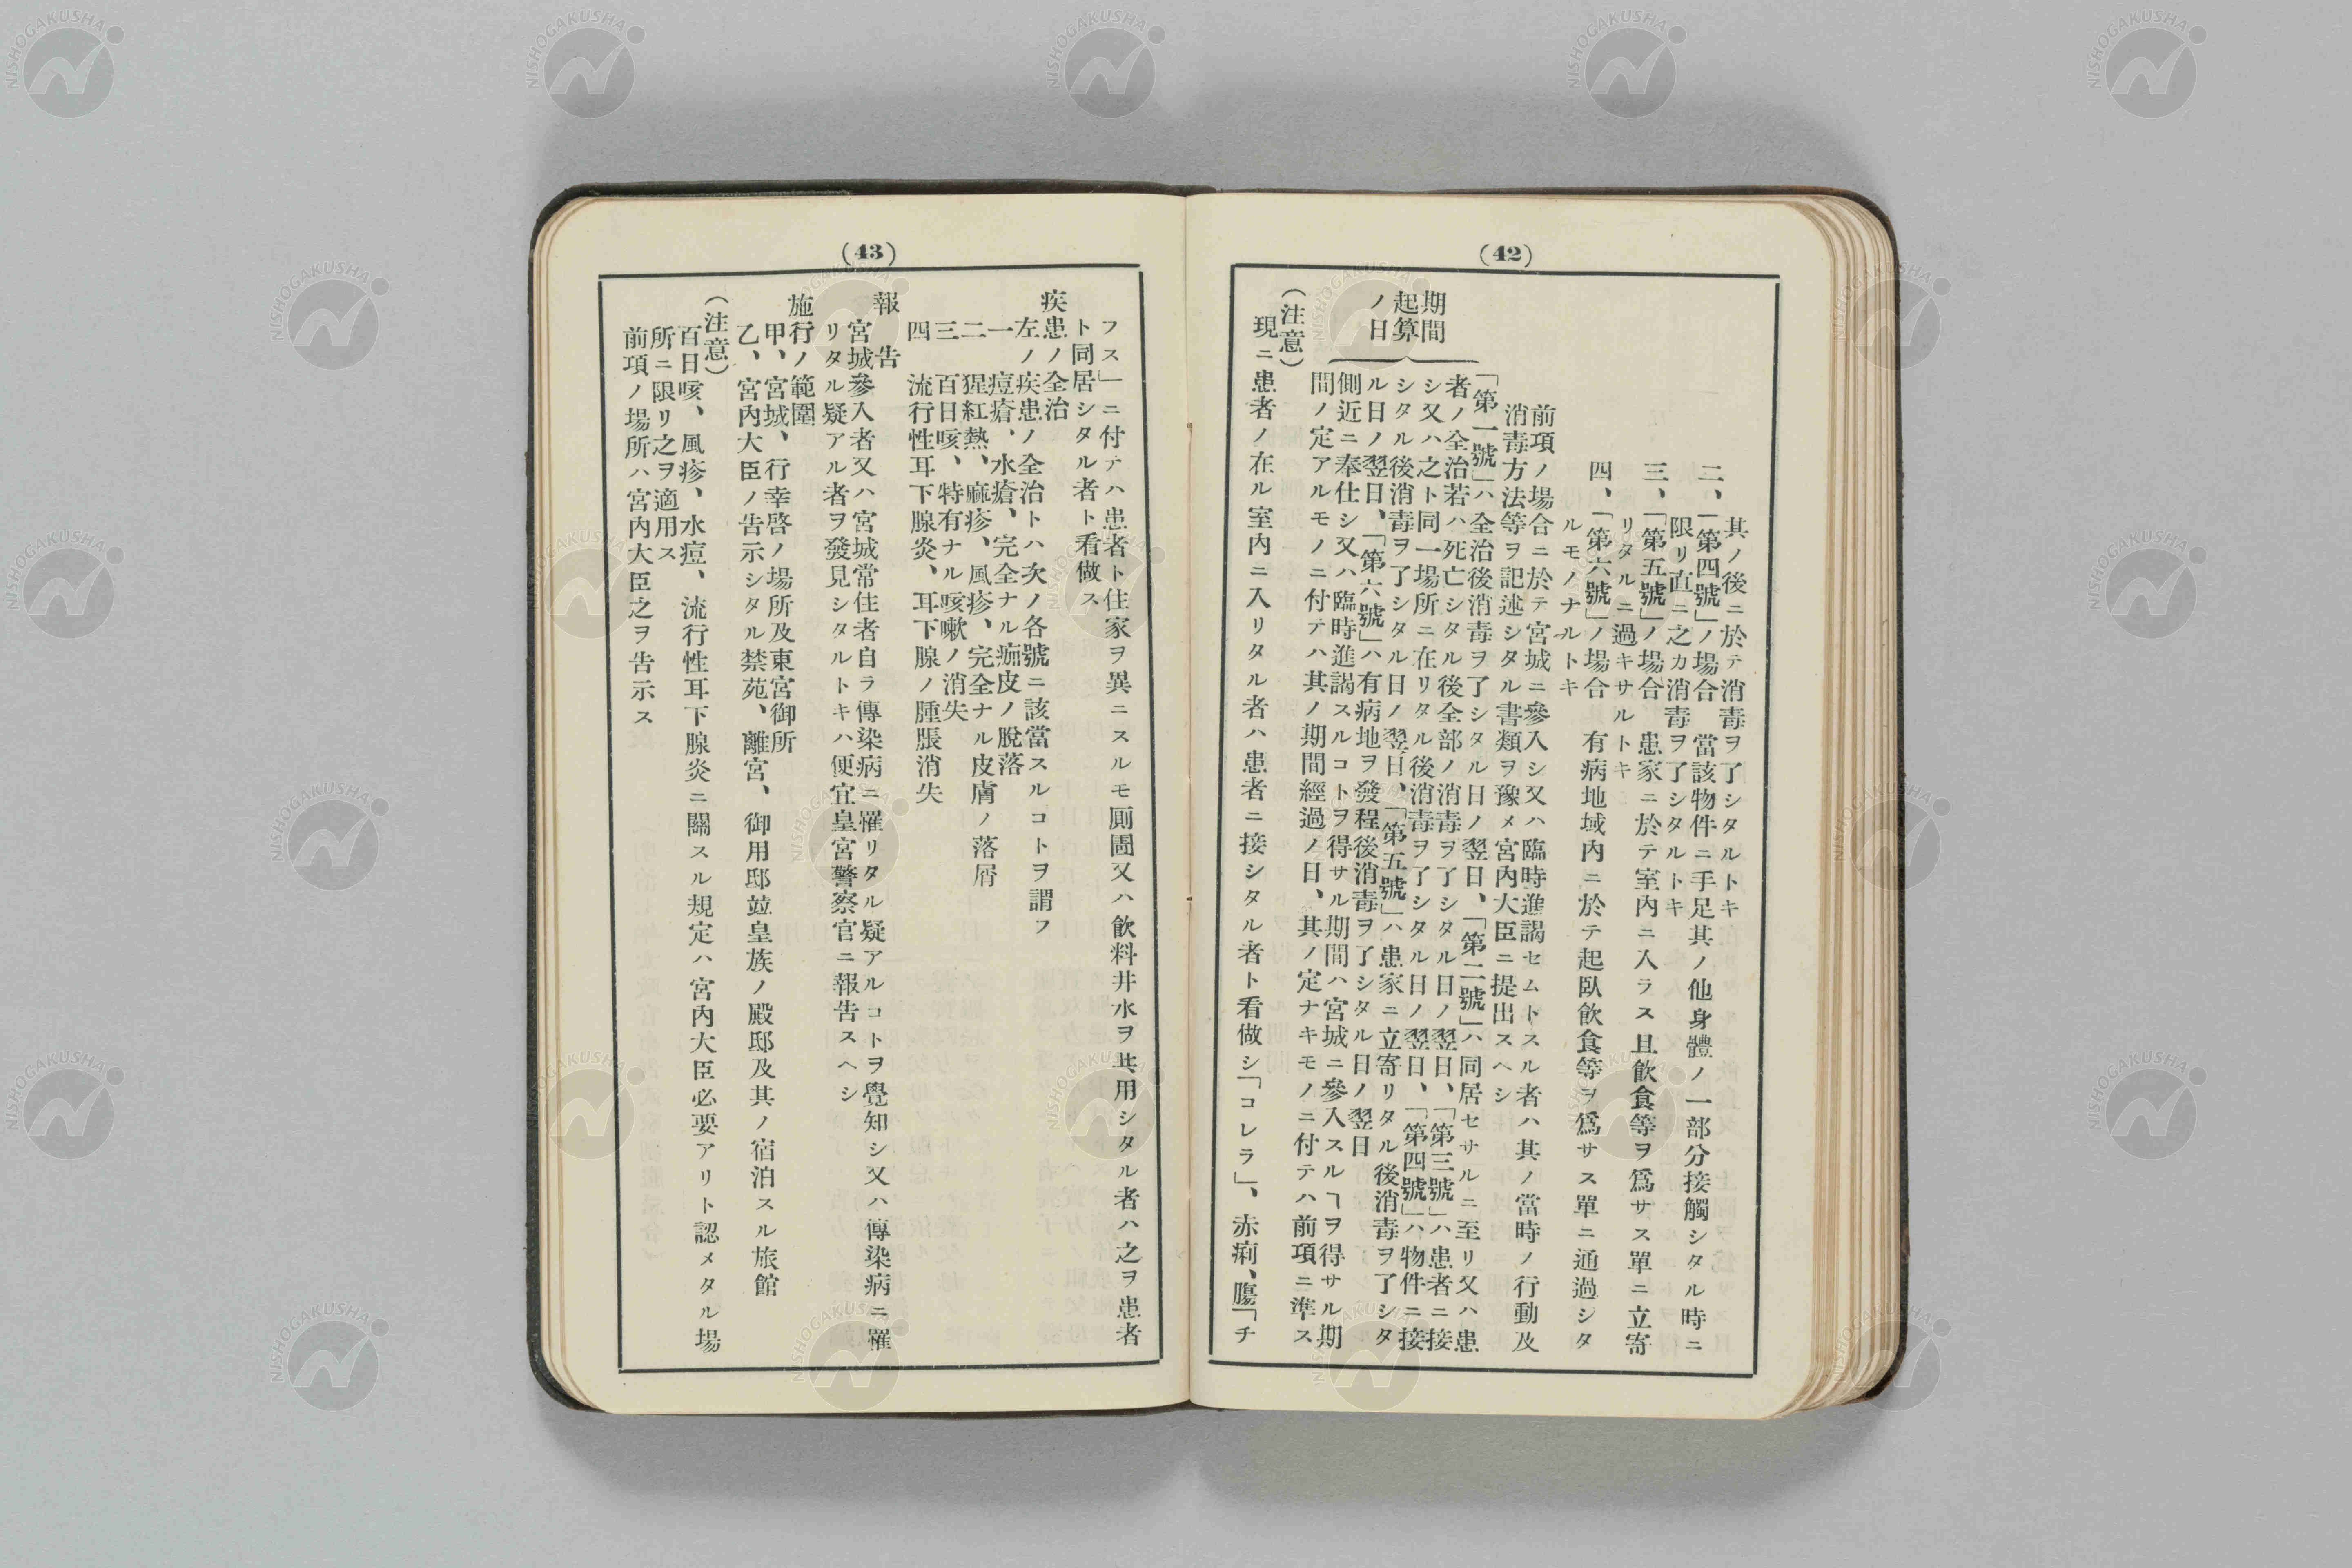 (42)
其ノ後ニ於テ消毒ヲ了シタルトキ
二、「第四號」ノ場合　當該物件ニ手足其ノ他身體ノ一部分接觸シタル時ニ
限リ直ニ之カ消毒ヲ了シタルトキ
三、「第五號」ノ場合　患家ニ於テ室内ニ入ラス且飮食等ヲ爲サス單ニ立寄
リタルニ過キサルトキ
四、「第六號」ノ場合　有病地域内ニ於テ起臥飮食等ヲ爲サス單ニ通過シタ
ルモノナルトキ
前項ノ場合ニ於テ宮城ニ參入シ又ハ臨時進謁セムトスル者ハ其ノ當時ノ行動及
消毒方法等ヲ記述シタル書類ヲ豫メ宮内大臣ニ提出スヘシ
期間
起算
ノ日
「第一號」ハ全治後消毒ヲ了シタル日ノ翌日、「第二號」ハ同居セサルニ至リ又ハ患
者ノ全治若ハ死亡シタル後全部ノ消毒ヲ了シタル日ノ翌日、「第三號」ハ患者ニ接
シ又ハ之ト同一場所ニ在リタル後消毒ヲ了シタル日ノ翌日、「第四號」ハ物件ニ接
シタル後消毒ヲ了シタル日ノ翌日、「第五號」ハ患家ニ立寄リタル後消毒ヲ了シタ
ル日ノ翌日、「第六號」ハ有病地ヲ發程後消毒ヲ了シタル日ノ翌日
側近ニ奉仕シ又ハ臨時進謁スルコトヲ得サル期間ハ宮城ニ參入スルヿヲ得サル期
間ノ定アルモノニ付テハ其ノ期間經過ノ日、其ノ定ナキモノニ付テハ前項ニ準ス
(注意)
現ニ患者ノ在ル室内ニ入リタル者ハ患者ニ接シタル者ト看做シ「コレラ」、赤痢、膓「チ
(43)
フス」ニ付テハ患者ト住家ヲ異ニスルモ厠圊又ハ飮料井水ヲ共用シタル者ハ之ヲ患者
ト同居シタル者ト看做ス
疾患ノ全治
左ノ疾患ノ全治トハ次ノ各號ニ該當スルコトヲ謂フ
一　痘瘡、水瘡、完全ナル痂皮ノ脫落
二　猩紅熱、麻疹、風疹、完全ナル皮膚ノ落屑
三　百日咳、特有ナル咳嗽ノ消失
四　流行性耳下腺炎、耳下腺ノ腫脹消失
報告
宮城參入者又ハ宮城常住者自ラ傳染病ニ罹リタル疑アルコトヲ覺知シ又ハ傳染病ニ罹
リタル疑アル者ヲ發見シタルトキハ便宜皇宮警察官ニ報告スヘシ
施行ノ範圍
甲、宮城、行幸啓ノ場所及東宮御所
乙、宮内大臣ノ告示シタル禁苑、離宮、御用邸竝皇族ノ殿邸及其ノ宿泊スル旅館
(注意)
百日咳、風疹、水痘、流行性耳下腺炎ニ關スル規定ハ宮内大臣必要アリト認メタル場
所ニ限リ之ヲ適用ス
前項ノ場所ハ宮内大臣之ヲ告示ス
NISHOGAKUSHA